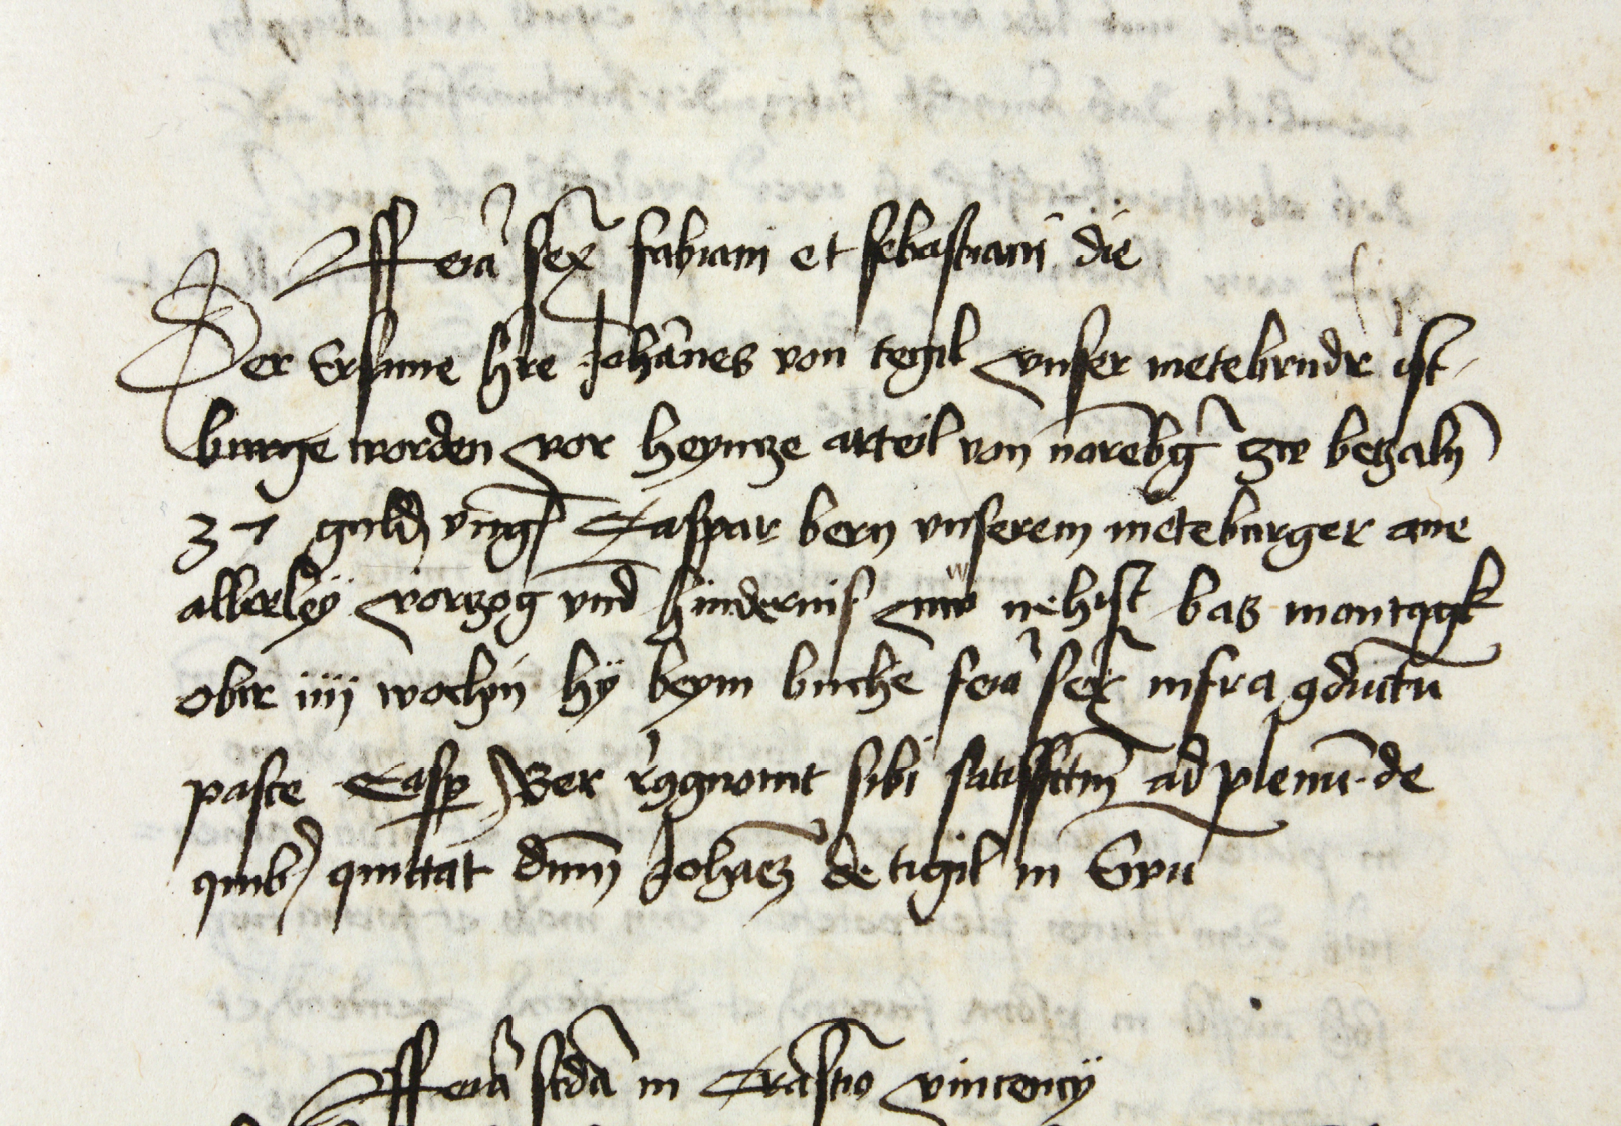 Feria sex fabiani et sebastiani die
Der Ersame h're Johannes von tegil vnser metebrudr ist
burge worden vor heyncze arteil von norēbg czw beczaln
37 guld vng Caspar bern vnserem meteburger ane
allerley vorczog vnd hindernis nw nehist bas montagk
obir iiij wochin hy beym buche feria sex infra 9ductū
pasce Casp Ber r9gnouit sibi satisffctm ad plenū de
quib quittat dnm Johaez de tigil in Spu
Feria scda in Crastino vincencij